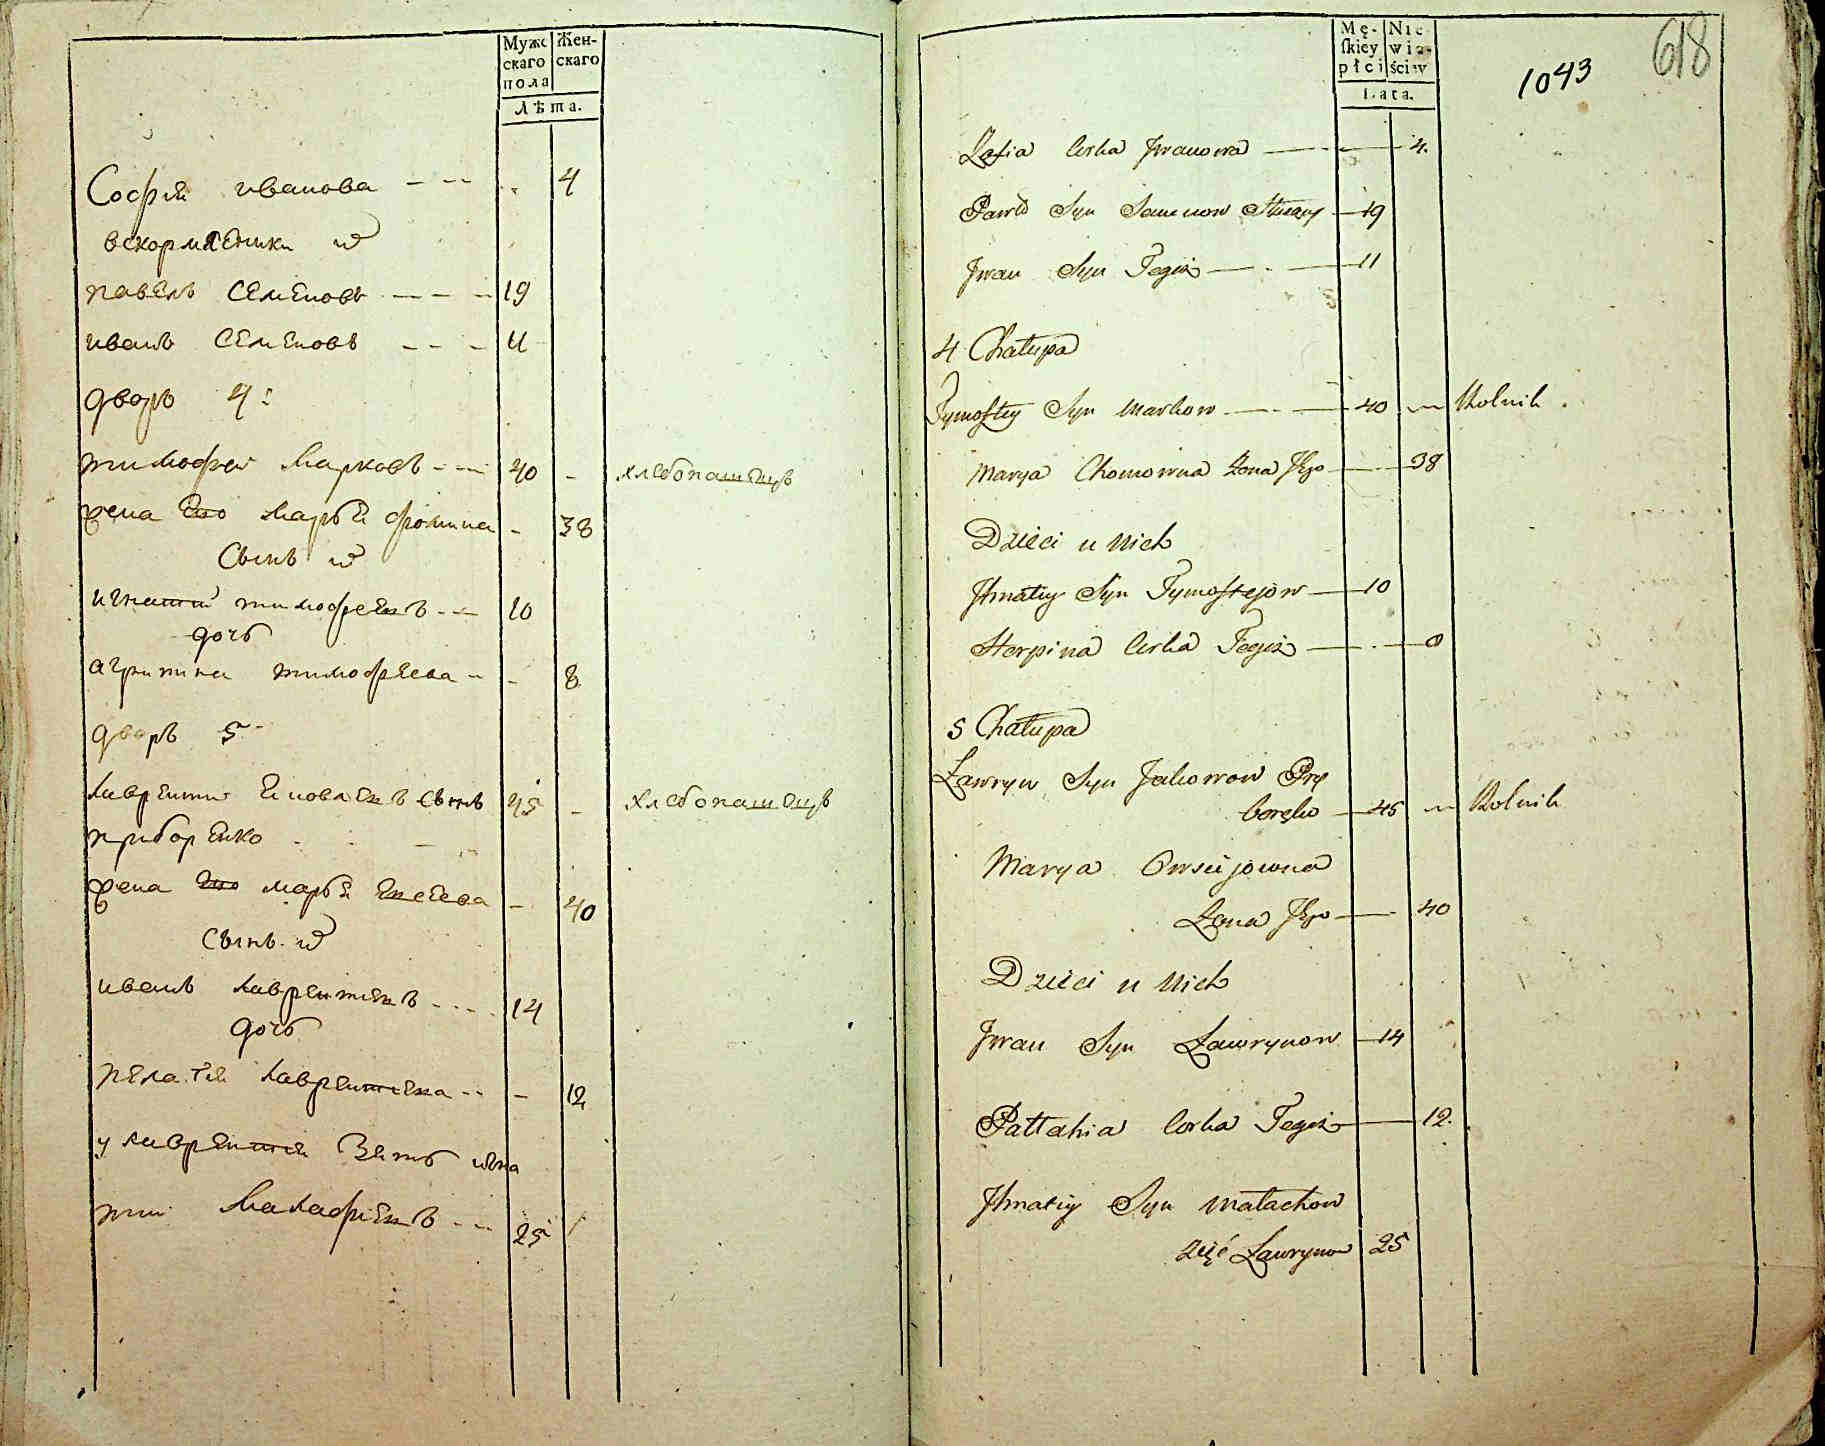 Мужс
скаго
пола
Жен-
скаго
Лѣта.
Софія иванова - - - . 4
вскормленики ихъ
павелъ Семеновъ - - - 19
иванъ Семеновъ - - - 11
дворъ 4:
тимофей Марковъ - - - 40 - хлебопашецъ
жена Его Марья фомина - 38
Сынъ ихъ
игнатий тимофеевъ - - - 10
дочь
агрипина тимофеева - - 8
дворъ 5
лаврентий Яковлевъ Сынъ 45 - хлебопашецъ
приборенко
жена Его марья Евсеева - 40
Сынъ ихъ
иванъ лаврентиевъ - - - 14
дочь
пелагея лаврентиева - - - 12
у лаврентия Зять игна
тий Малафиевъ - - - 25
Mę-
skiey
płci
Nie
wia-
ściey
Lata.
1043
618
Zofia Corka Jwanowa 4.
Paweł Syn Semenow 19
Jwan Syn Tegoż 11
4 Chałupa
Tymoftey Syn Markow 40 Rolnik.
Marya Chomowna Żona Jego 38
Dzieci u Nich
Jhnatiy Syn Tymoftejow 10
Horpina Corka Tegoż 8
5 Chałupa
Ławryn Syn Jakowow Pry
boreńko 45 Rolnik
Marya Owsiejowna
Żona Jego 40
Dzieci u Nich
Jwan Syn Ławrynow 14
Pałtahia Corka Tegoż 12.
Jhnatiy Syn Małachow
zięć Ławrynow 25